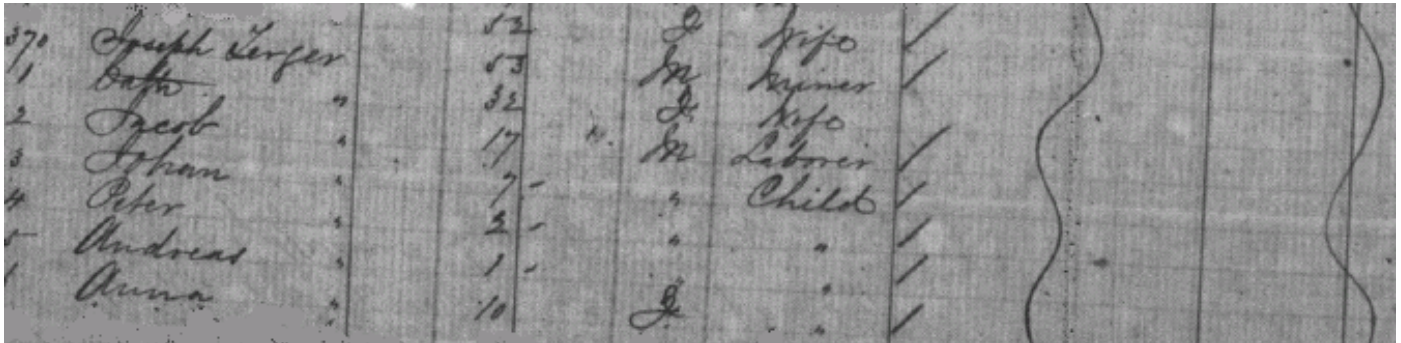 52 F Wife
370 Joseph Lerger 53 M Miner /
1 Cath " 32 F Wife
2 Jacob " 17 M Laborer /
3 Johan " 7 - " Child /
4 Peter " 2 - " " /
5 Andreas " 1 - " " /
Anna " 10 F " /